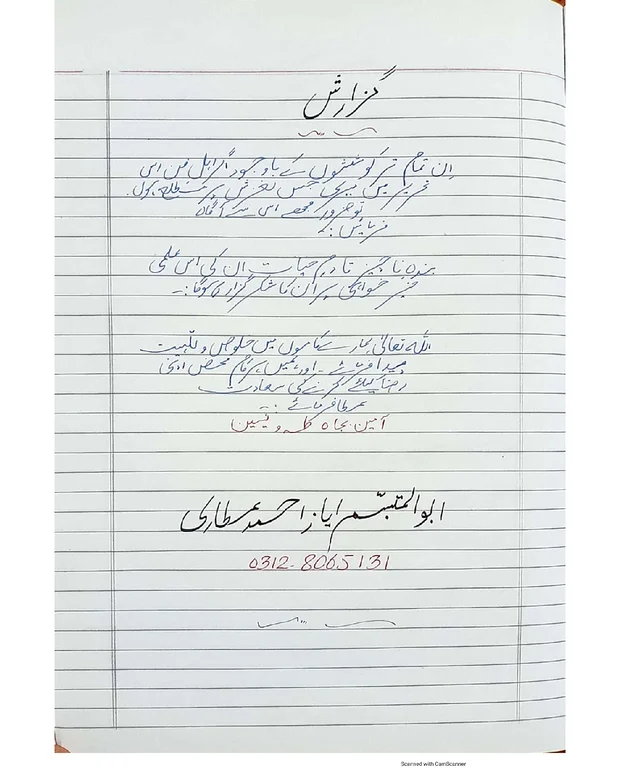 گزارش
ان تمام تر کوششوں کے باوجود اگر اہل فن اس
تحریر میں میری جس لغزش پر مطلع ہوں
تو ضرور مجھے اس سے آگاہ
فرمائیں :
بندہ ناچیز تا دم حیات ان کی اس علمی
خیر خواہی پر ان کا شکر گزار ہوگا :-
اللہ تعالیٰ ہمارے کاموں میں خلوص و للہیت
پیدا فرمائے - اور ہمیں ہر کام محض اپنی
رضا کیلئے کرنے کی سعادت
عطا فرمائے :-
آمین بجاہ طٰہٰ و یٰسین
ابو المتبسّم ایاز احمد عطاری
0312-8065131
Scanned with CamScanner